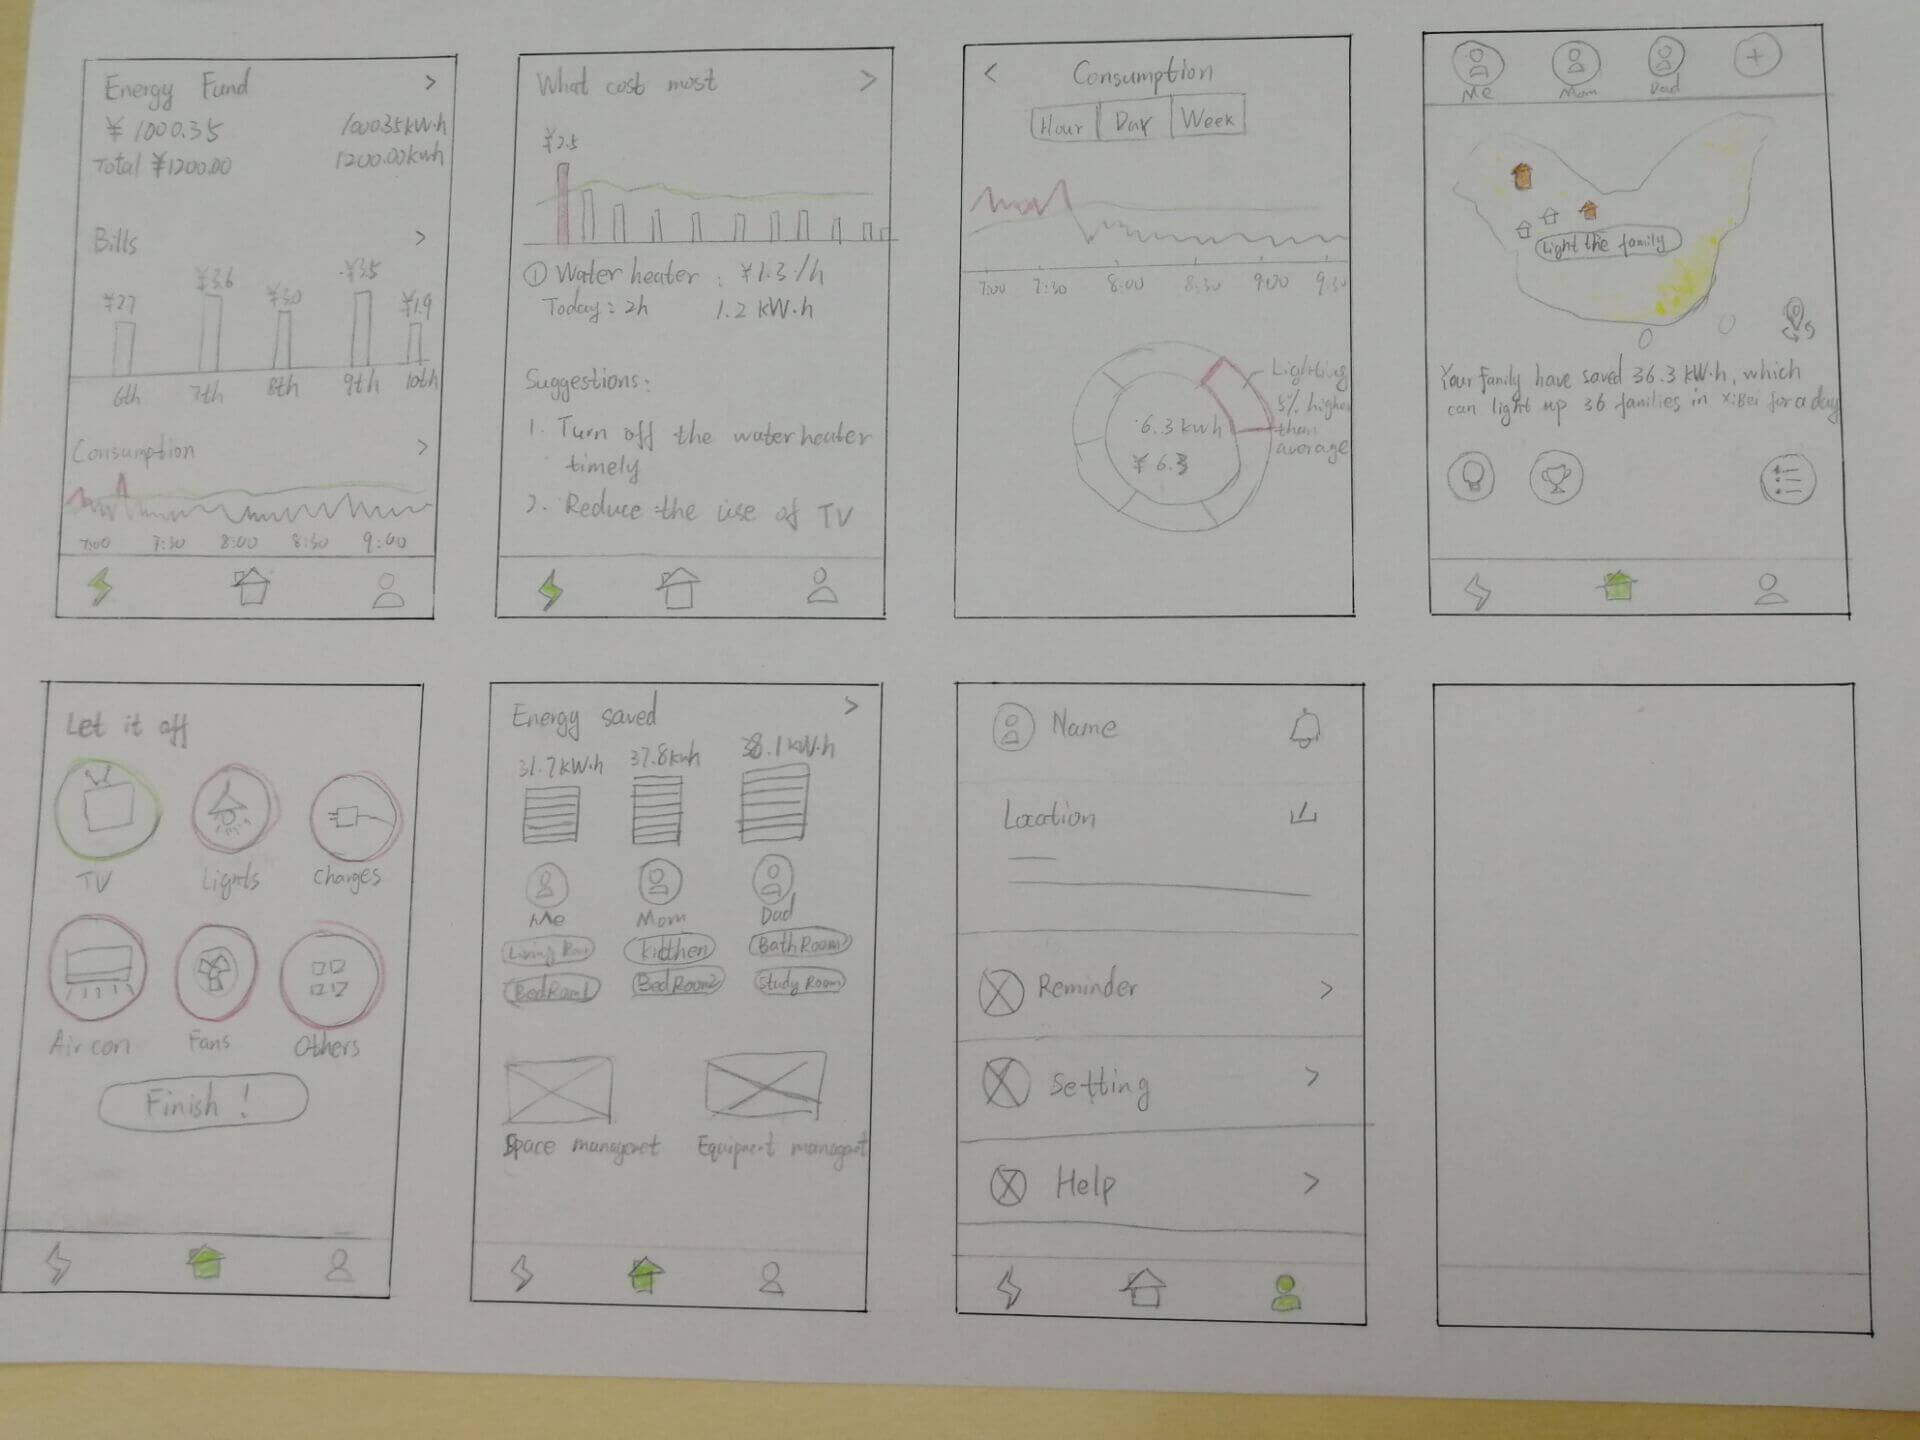 Energy Fund >
¥ 1000.35 1000.35kW·h
Total ¥1200.00 1200.00kwh
Bills >
¥27 ¥3.6 ¥30 ¥35 ¥1.9
6th 7th 8th 9th 10th
Consumption >
7:00 7:30 8:00 8:30 9:00
What cost most >
¥2.5
① Water heater : ¥1.3/h
Today: 2h 1.2 kW·h
Suggestions:
1. Turn off the water heater
timely
2. Reduce the use of TV
< Consumption
Hour Day Week
7:00 7:30 8:00 8:30 9:00 9:30
Lighting
5% higher
than
average
6.3 kwh
¥ 6.3
Me Mom Dad +
Light the family
Your family have saved 36.3 kW·h, which
can light up 36 families in XiBei for a day
Let it off
TV Lights Charges
Air con Fans Others
Finish !
Energy saved >
31.7kW·h 37.8kwh 38.1kW·h
Me Mom Dad
Living Room kitthen BathRoom
BedRoom1 BedRoom2 Study Room
Space managenet Equipment managent
Name
Location
Reminder >
Setting >
Help >